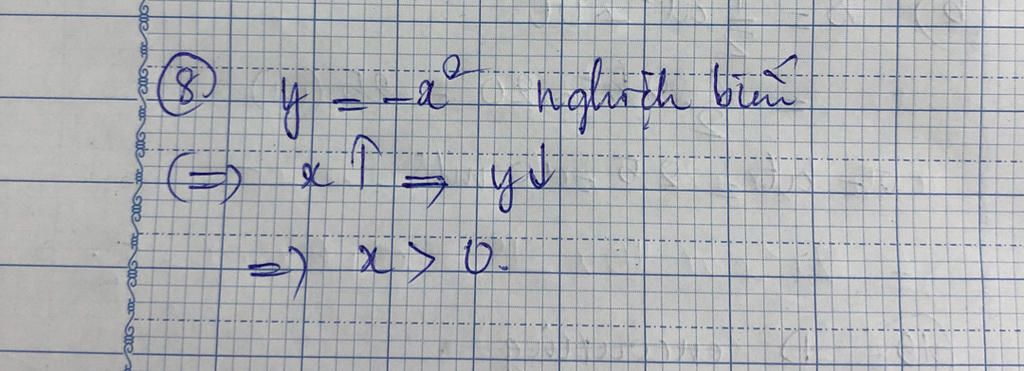 ⑧ y = -x² nghịch biến
(=) x ↑ => y ↓
=> x > 0.